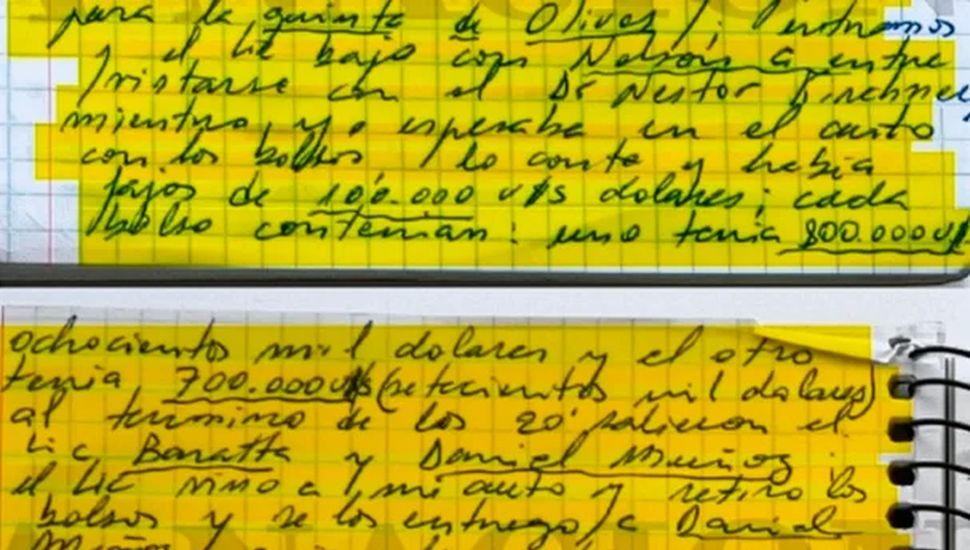 para la quinta de Olivos); entramos
y el lic bajo con Nelson G entre
vistarse con el Dr Nestor Kirchner
mientras yo esperaba en el auto
con los bolsos / lo conte y habia
fajos de 100.000 u$s dolares; cada
bolso contenian: uno tenia 800.000 u$s
ochocientos mil dolares y el otro
tenia 700.000 u$s (setecientos mil dolares)
al termino de los 20' salieron el
Lic Baratta y Daniel Muñoz
el Lic vino a mi auto y retiro los
bolsos y se los entrego a Daniel
Muñoz